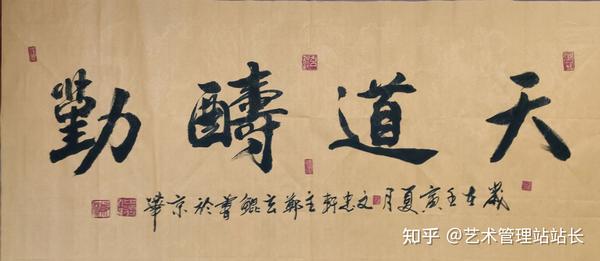 天道醻勤
歲在壬寅夏月文忠軒主鄭鯤書於京華
知乎 @艺术管理站站长